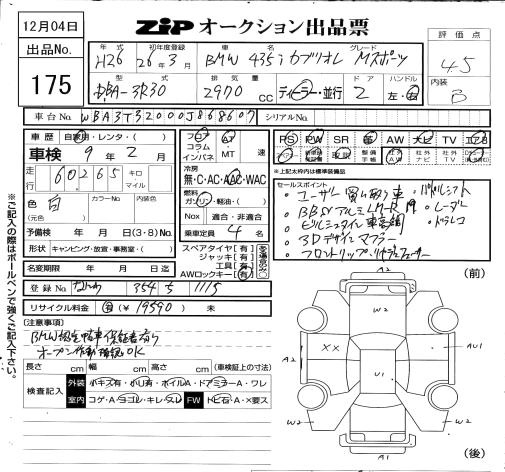 12月04日
ZIP オークション出品票
出品No.
175
評価点
4.5
内装
B
年式 初年度登録 車名 グレード
H26 26年3月 BMW 435i カブリオレ Mスポーツ
型式 排気量 ドア ハンドル
DBA-3R30 2970 CC ディーラー・並行 2 左・右
車台No. WBA3T32000J868607 シリアルNo.
車歴 自家用・レンタ・( )
車検 9年2月
走行 60265 キロ マイル
色 白 カラーNo. 内装色
(元色)
予備検 年 月 日 (3・8) No.
形状 キャンピング・放宣・事務室・( )
名変期限 年 月 日迄
登録No. なにわ 354 5 1115
リサイクル料金 有 ¥19590 未
フロア AT
コラム
インパネ MT 速
冷房
無・C・AC・AAC・WAC
燃料
ガソリン・軽油・( )
Nox 適合・非適合
乗車定員 4 名
スペアタイヤ【有】
ジャッキ【有】
工具【有】
AWロックキー【有】
PS PW SR 革 AW ナビ TV エアB
※上記太枠内は標準装備品
セールスポイント
・ユーザー買い取り車
・BBSアルミ LM-R 19
・ビルシュタイン車高調
・3Dデザインマフラー
・パドルシフト
・レーダー
・ドラレコ
[注意事項]
BMW認定中古車保証書有り
オープン作動確認OK
長さ cm 幅 cm 高さ cm (車検証上の寸法)
検査記入
外装 小キズ有・小ハリ有・ホイルA・ドアミラーA・ワレ
室内 コゲ・A・ヨゴレ・キレ・スレ FW トビ石・A・X要ス
※ご記入の際はボールペンで強くご記入下さい。
(前)
A2
W2
A2
XX
U1
AU1
W2
W2
A1
(後)